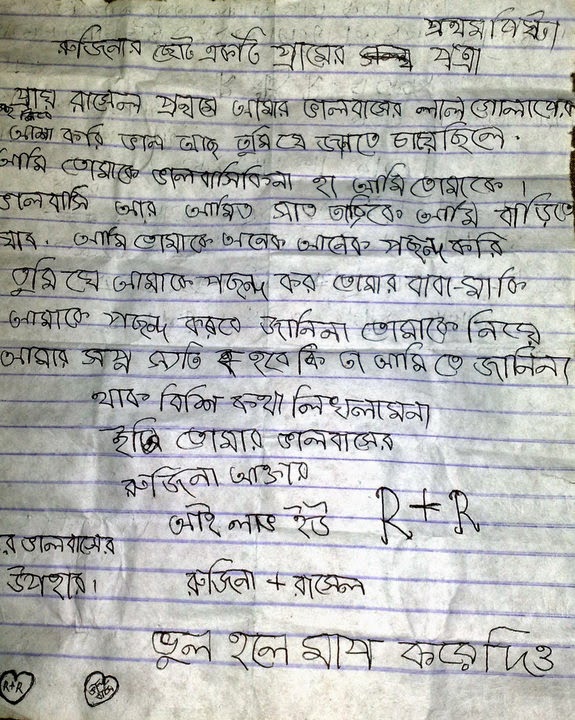 প্রথম পিষ্টা
রুজিনার ছোট একটি প্রামের পত্রা
প্রায় রাসেল প্রথমে আমার ভালবাসের লাল গোলাপের
আশা করি ভাল আছ তুমি যে জানতে চায়েছিলে.
আমি তোমাকে ভালবাসিকিনা হা আমি তোমাকে ।
ভালবাসি আর আমিত সাত তারিকে আমি বাড়িতে
যাব. আমি তোমাকে অনেক অনেক পছন্দ করি
তুমি যে আমাকে পছন্দ কর তোমার বাবা-মা কি
আমাকে পছন্দ করবে জানিনা তোমাকে নিয়ে
আমার সপ্ন সত্যি হবে কি তা আমি তে জানিনা
থাক বিশি কথা লিখলামনা
ইতি তোমার ভালবাসের
রুজিনা আক্তার
আই লাভ ইউ R+R
র ভালবাসের
উপহার। রুজিনা + রাসেল
ভুল হলে মাপ করে দিও
R+R